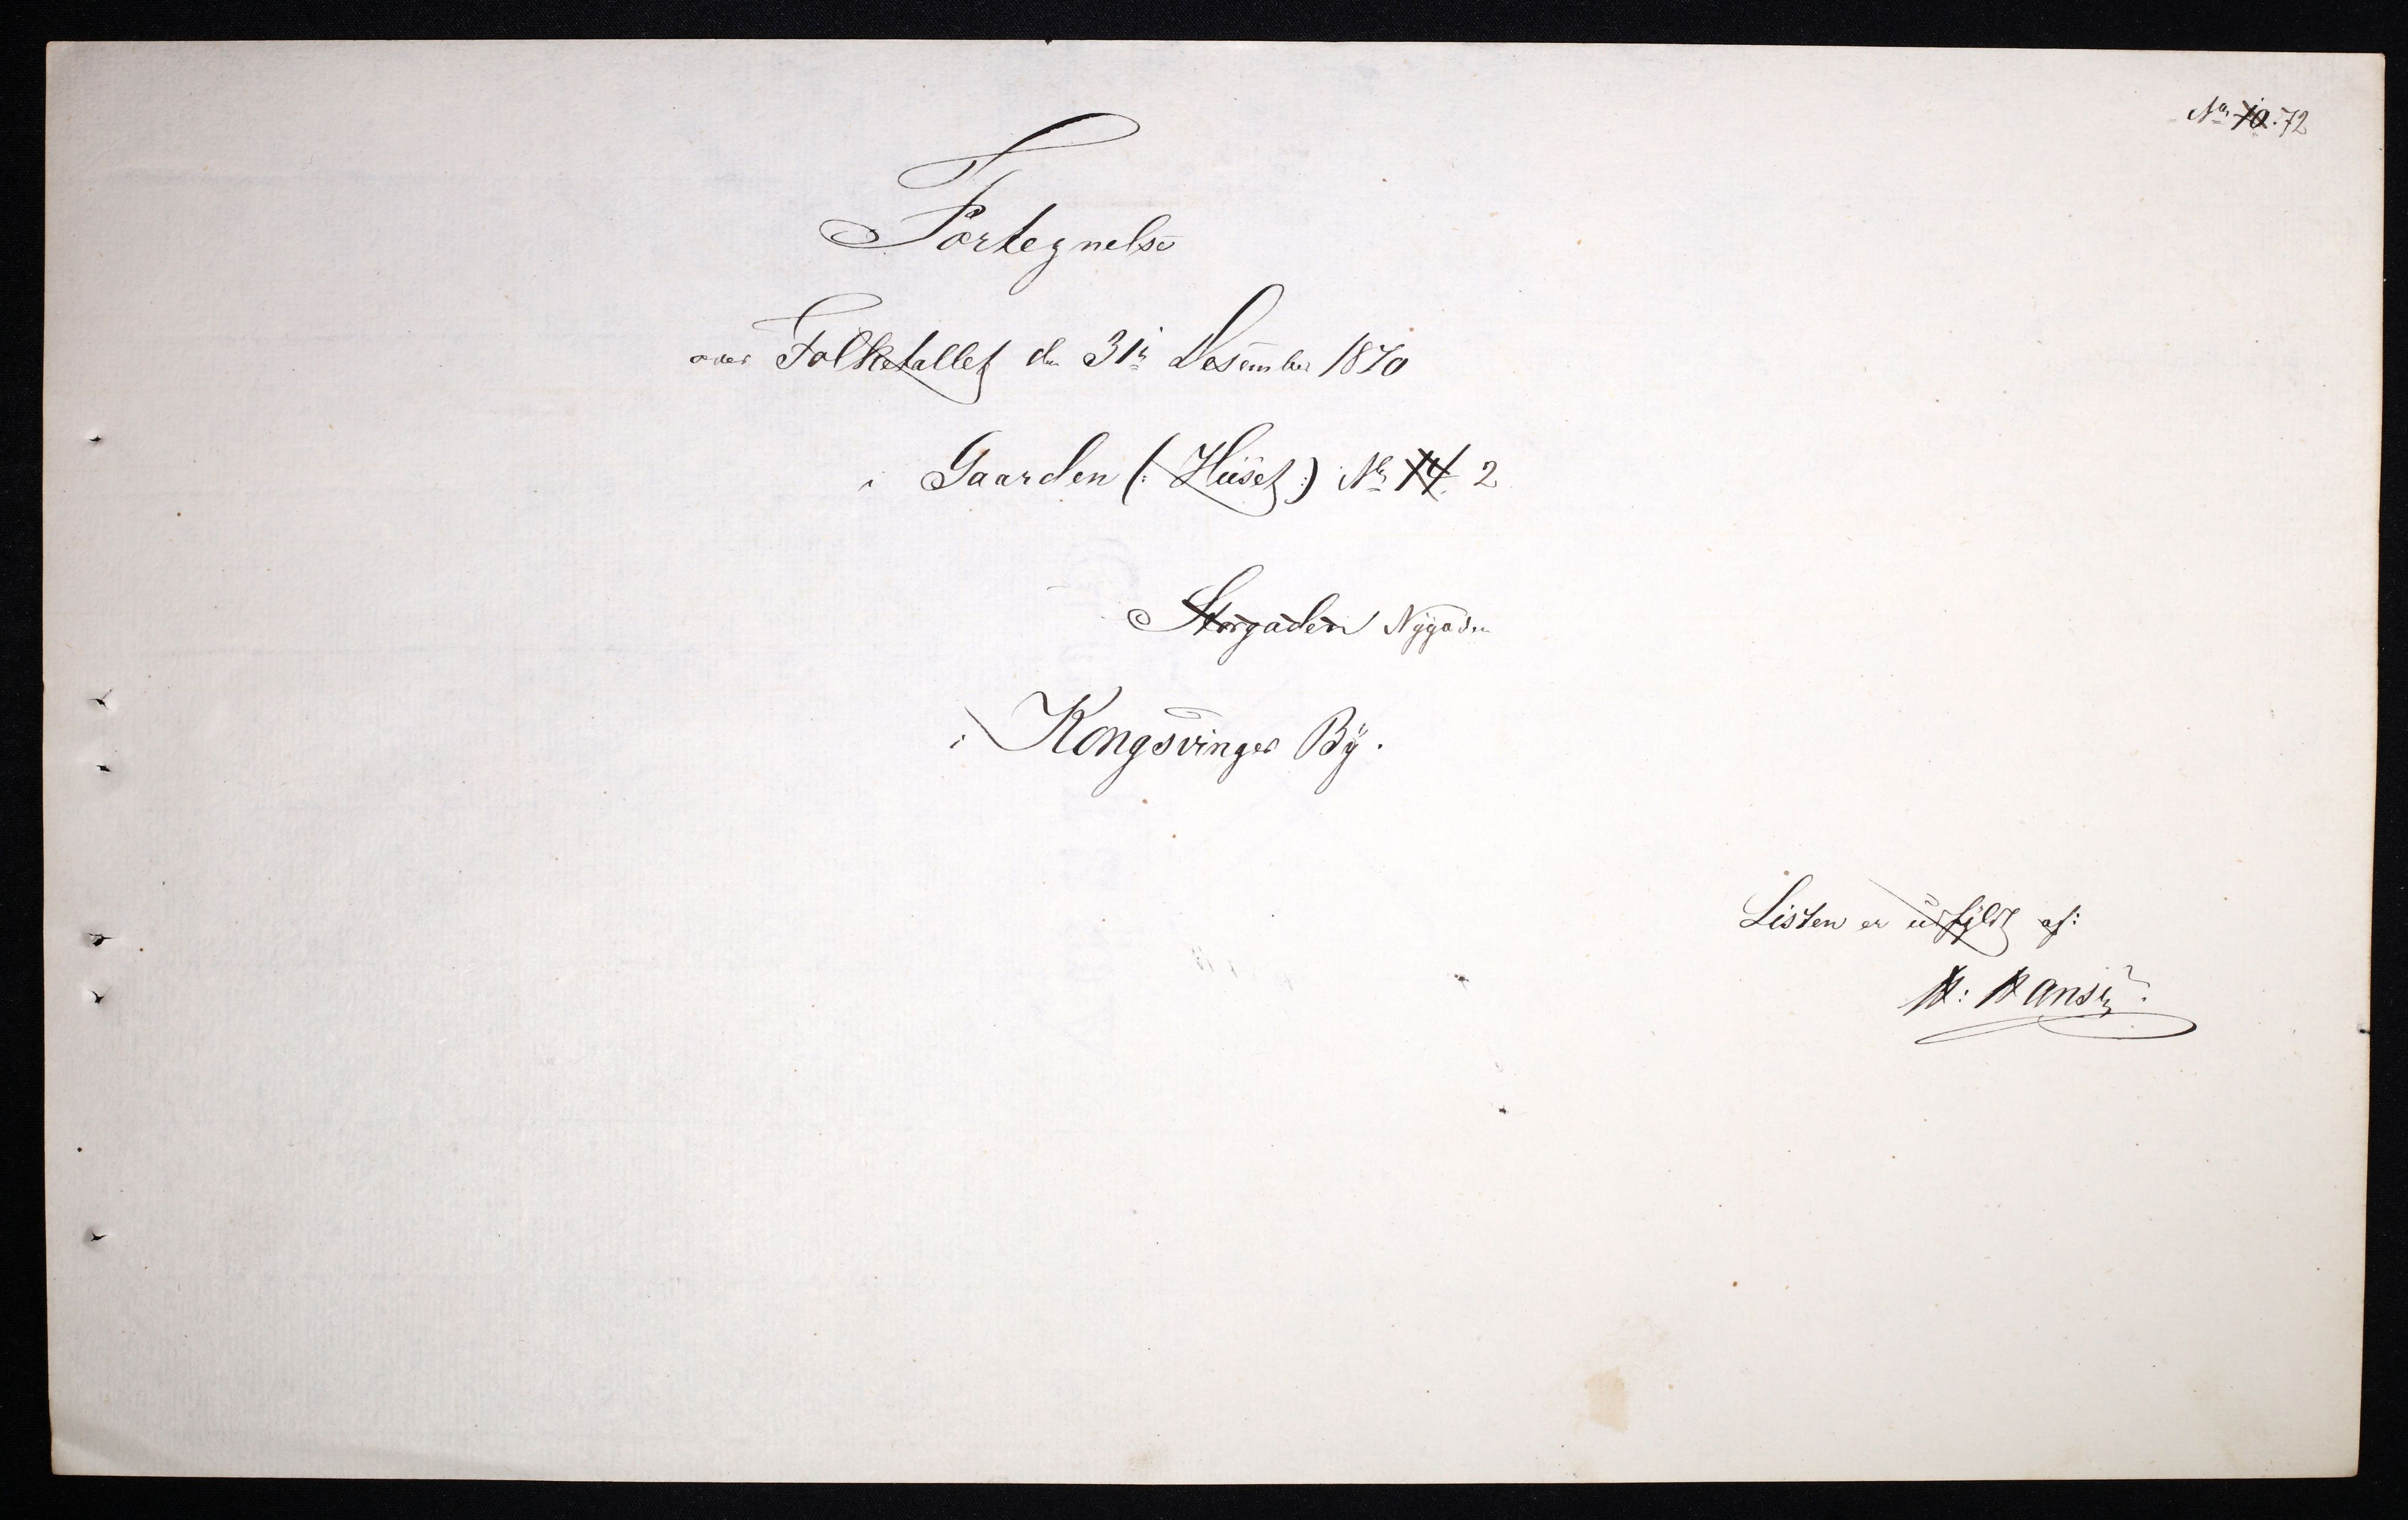 No 10. 72
Fortegnelse
over Folketallet den 31te Desember 1870
i Gaarden (: Huset :) No 14 2
Storgaden Nygaden
i Kongsvinger By.
Listen er udfyldt af:
H: Hansen.